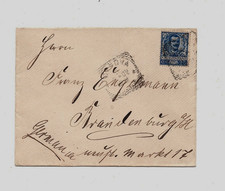 Herrn
Franz Engelmann
Brandenburg a/H
Germania neust. Markt 17
ROMA